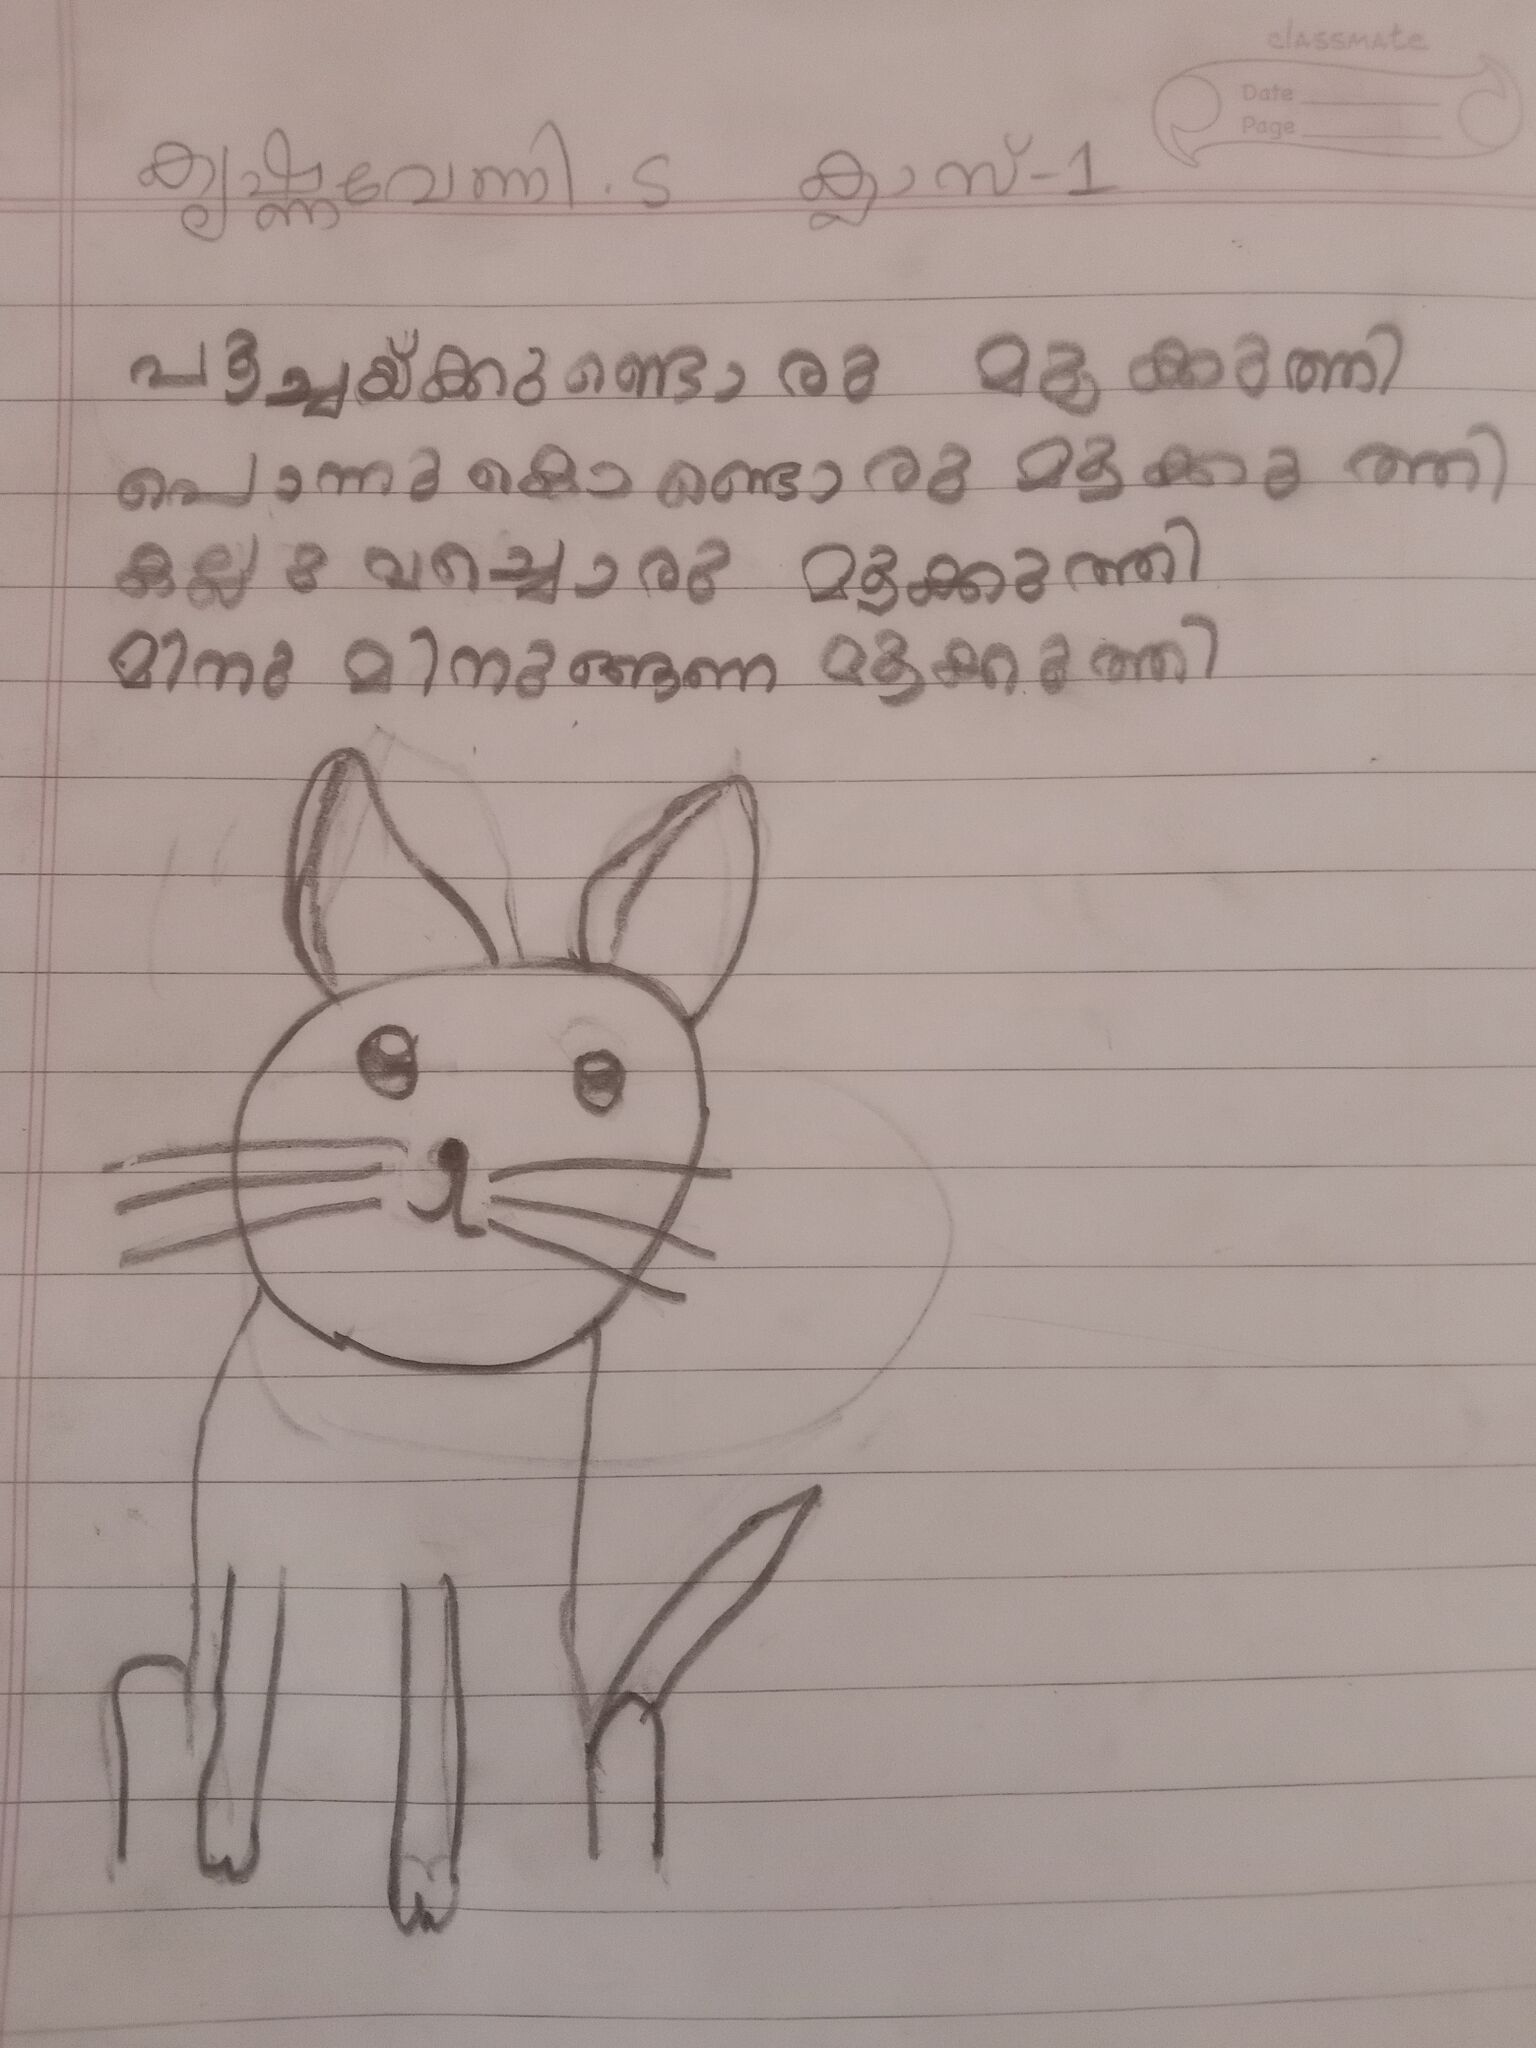 classmate
Date
Page
കൃഷ്ണവേണി.S ക്ലാസ്-1
പൂച്ചയ്ക്കുണ്ടൊരു മൂക്കുത്തി
പൊന്നുകൊണ്ടൊരു മൂക്കുത്തി
കല്ലു വച്ചൊരു മൂക്കുത്തി
മിനു മിനുങ്ങണ മൂക്കുത്തി